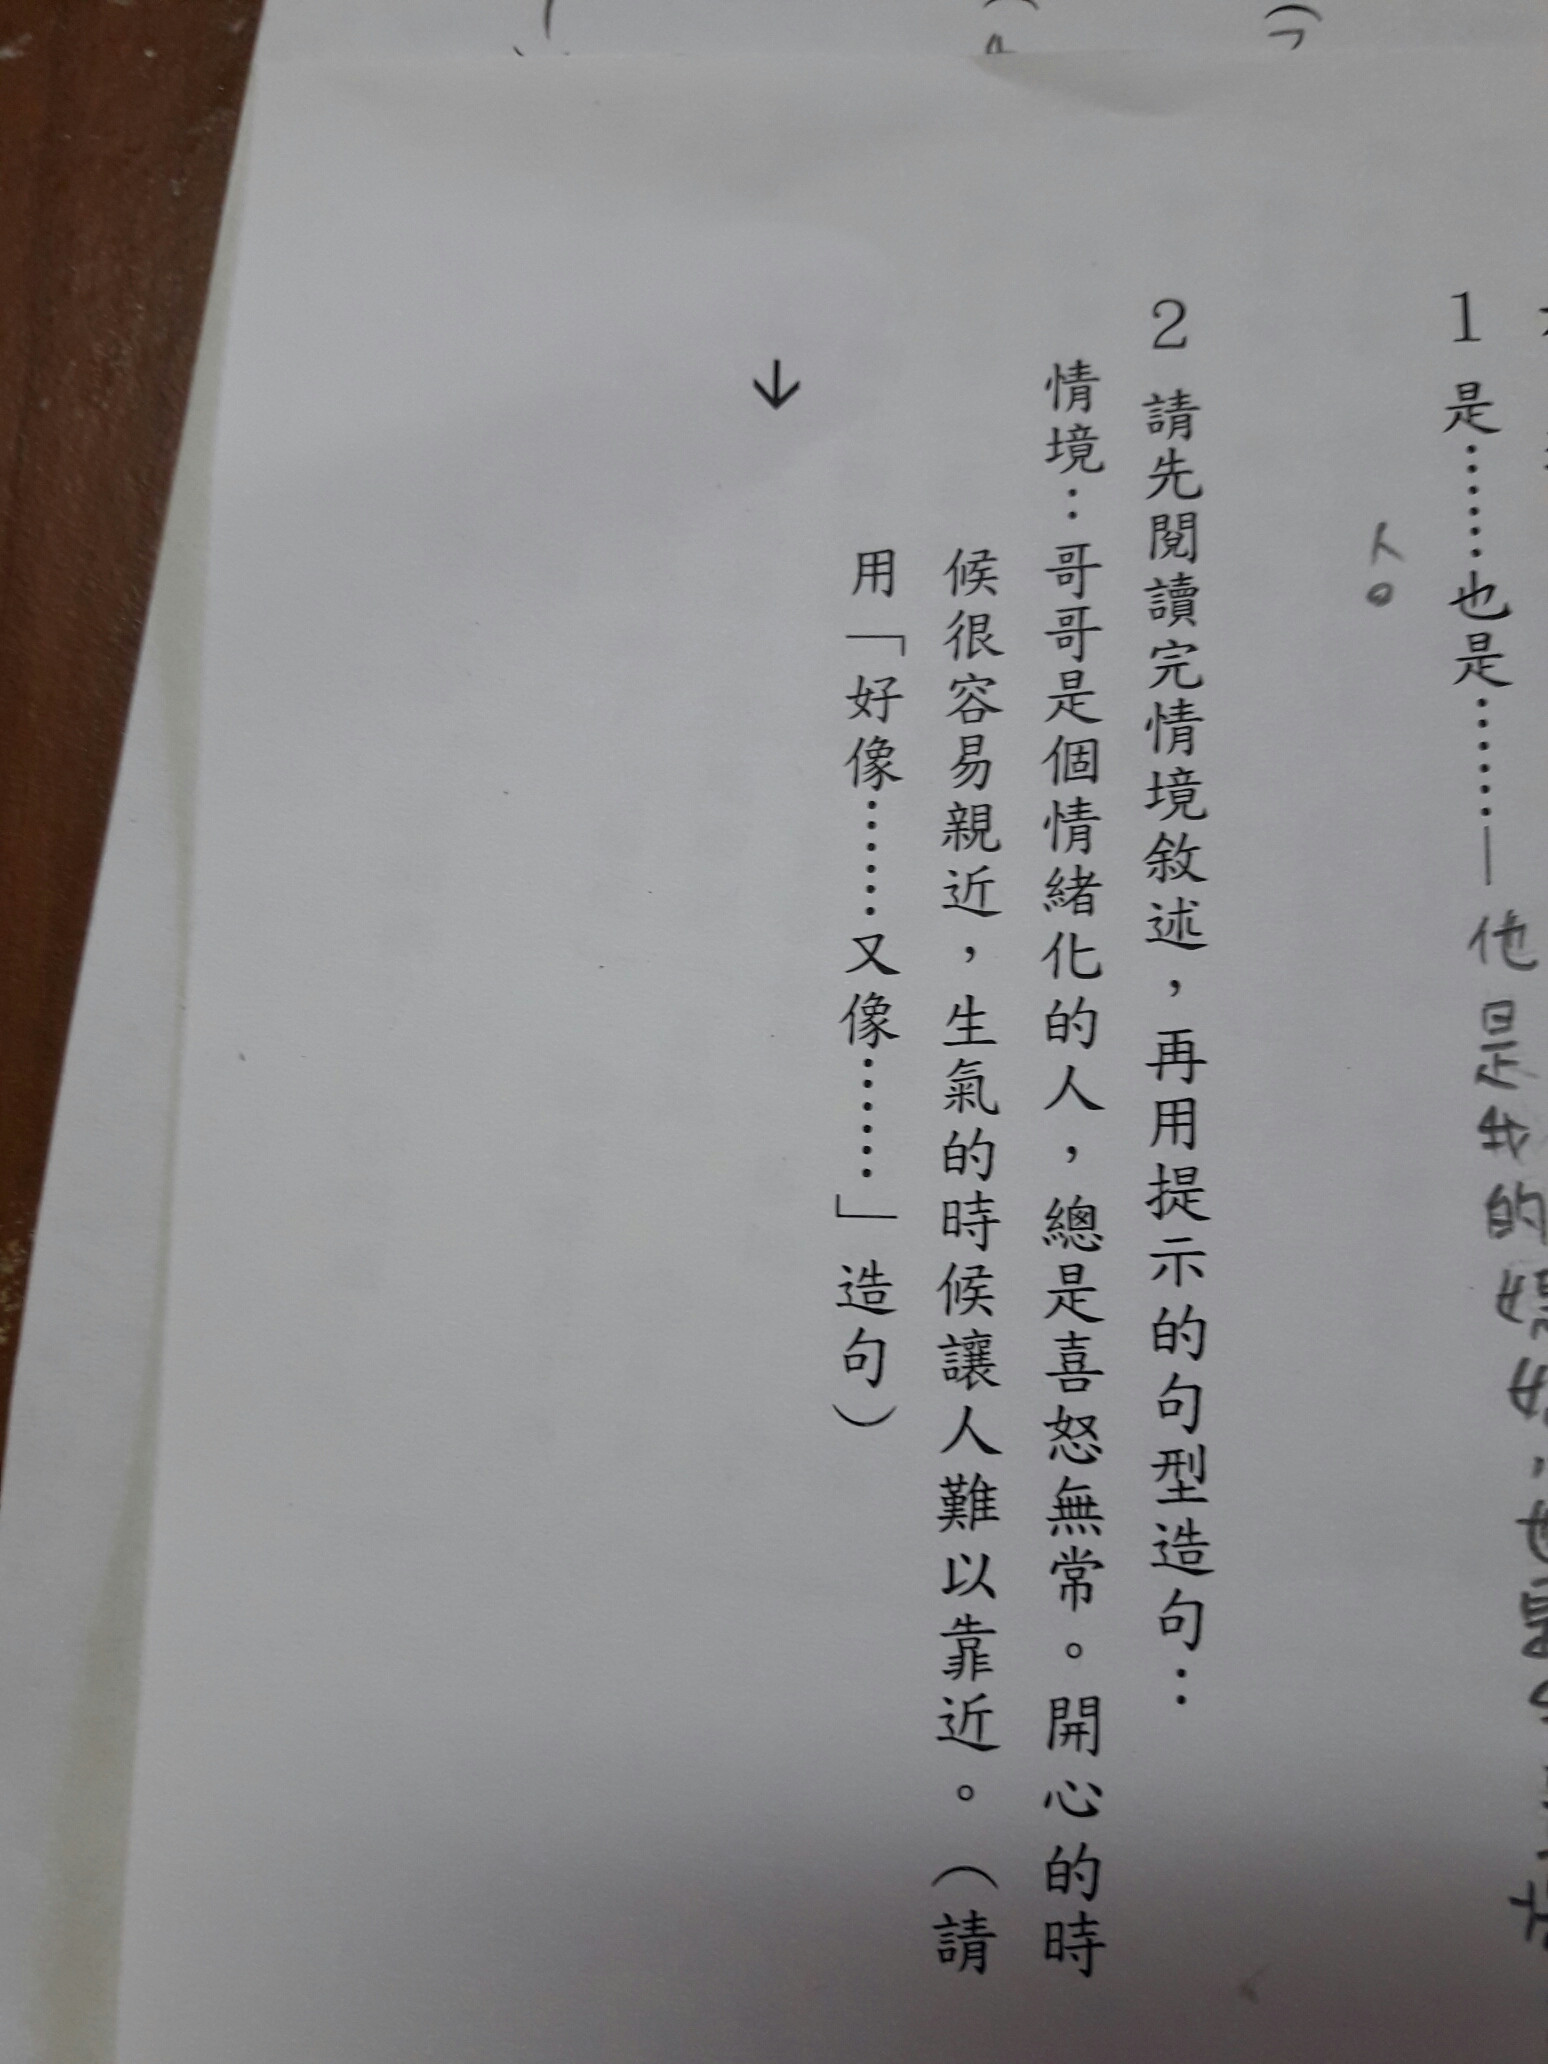 1 是⋯⋯也是⋯⋯—他是我的媽媽，也是
人。
2 請先閱讀完情境敘述，再用提示的句型造句：
情境：哥哥是個情緒化的人，總是喜怒無常。開心的時
候很容易親近，生氣的時候讓人難以靠近。（請
用「好像⋯⋯又像⋯⋯」造句）
↓